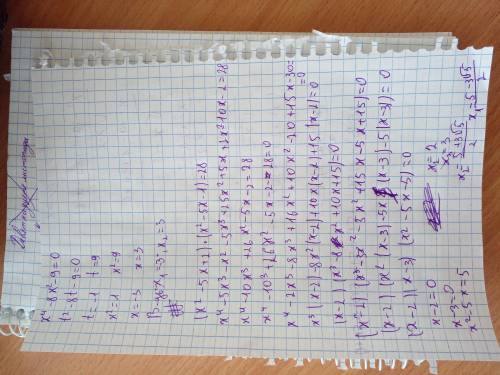 x⁴-8x²-9=0
t²-8t-9=0
t=-1 t=9
x²=1 x²=9
x=-3 x=3
x₁=-3 x₂=3
(x²-5x+2)·(x²-5x-1)=28
x⁴-5x³-x²-5x³+25x²+5x+2x²-10x-2=28
x⁴-10x³+26x²-5x-2=28
x⁴-10³+26x²-5x-2-28=0
x⁴-2x³-8x³+16x²+10x²-20+15x-30=0
x³(x-2)-8x²(x-2)+10x(x-2)+15(x-2)=0
(x-2)(x³-8x²+10x+15)=0
(x-2)(x³-3x²-8x²+15x-5x+15)=0
(x-2)(x²(x-3)-5x(x-3)-5(x-3))=0
(x-2)(x-3)(x²-5x-5)=0
x-2=0 x=2
x-3=0 x=3
x²-5x=5 x=5+3√5/2 x=5-3√5/2